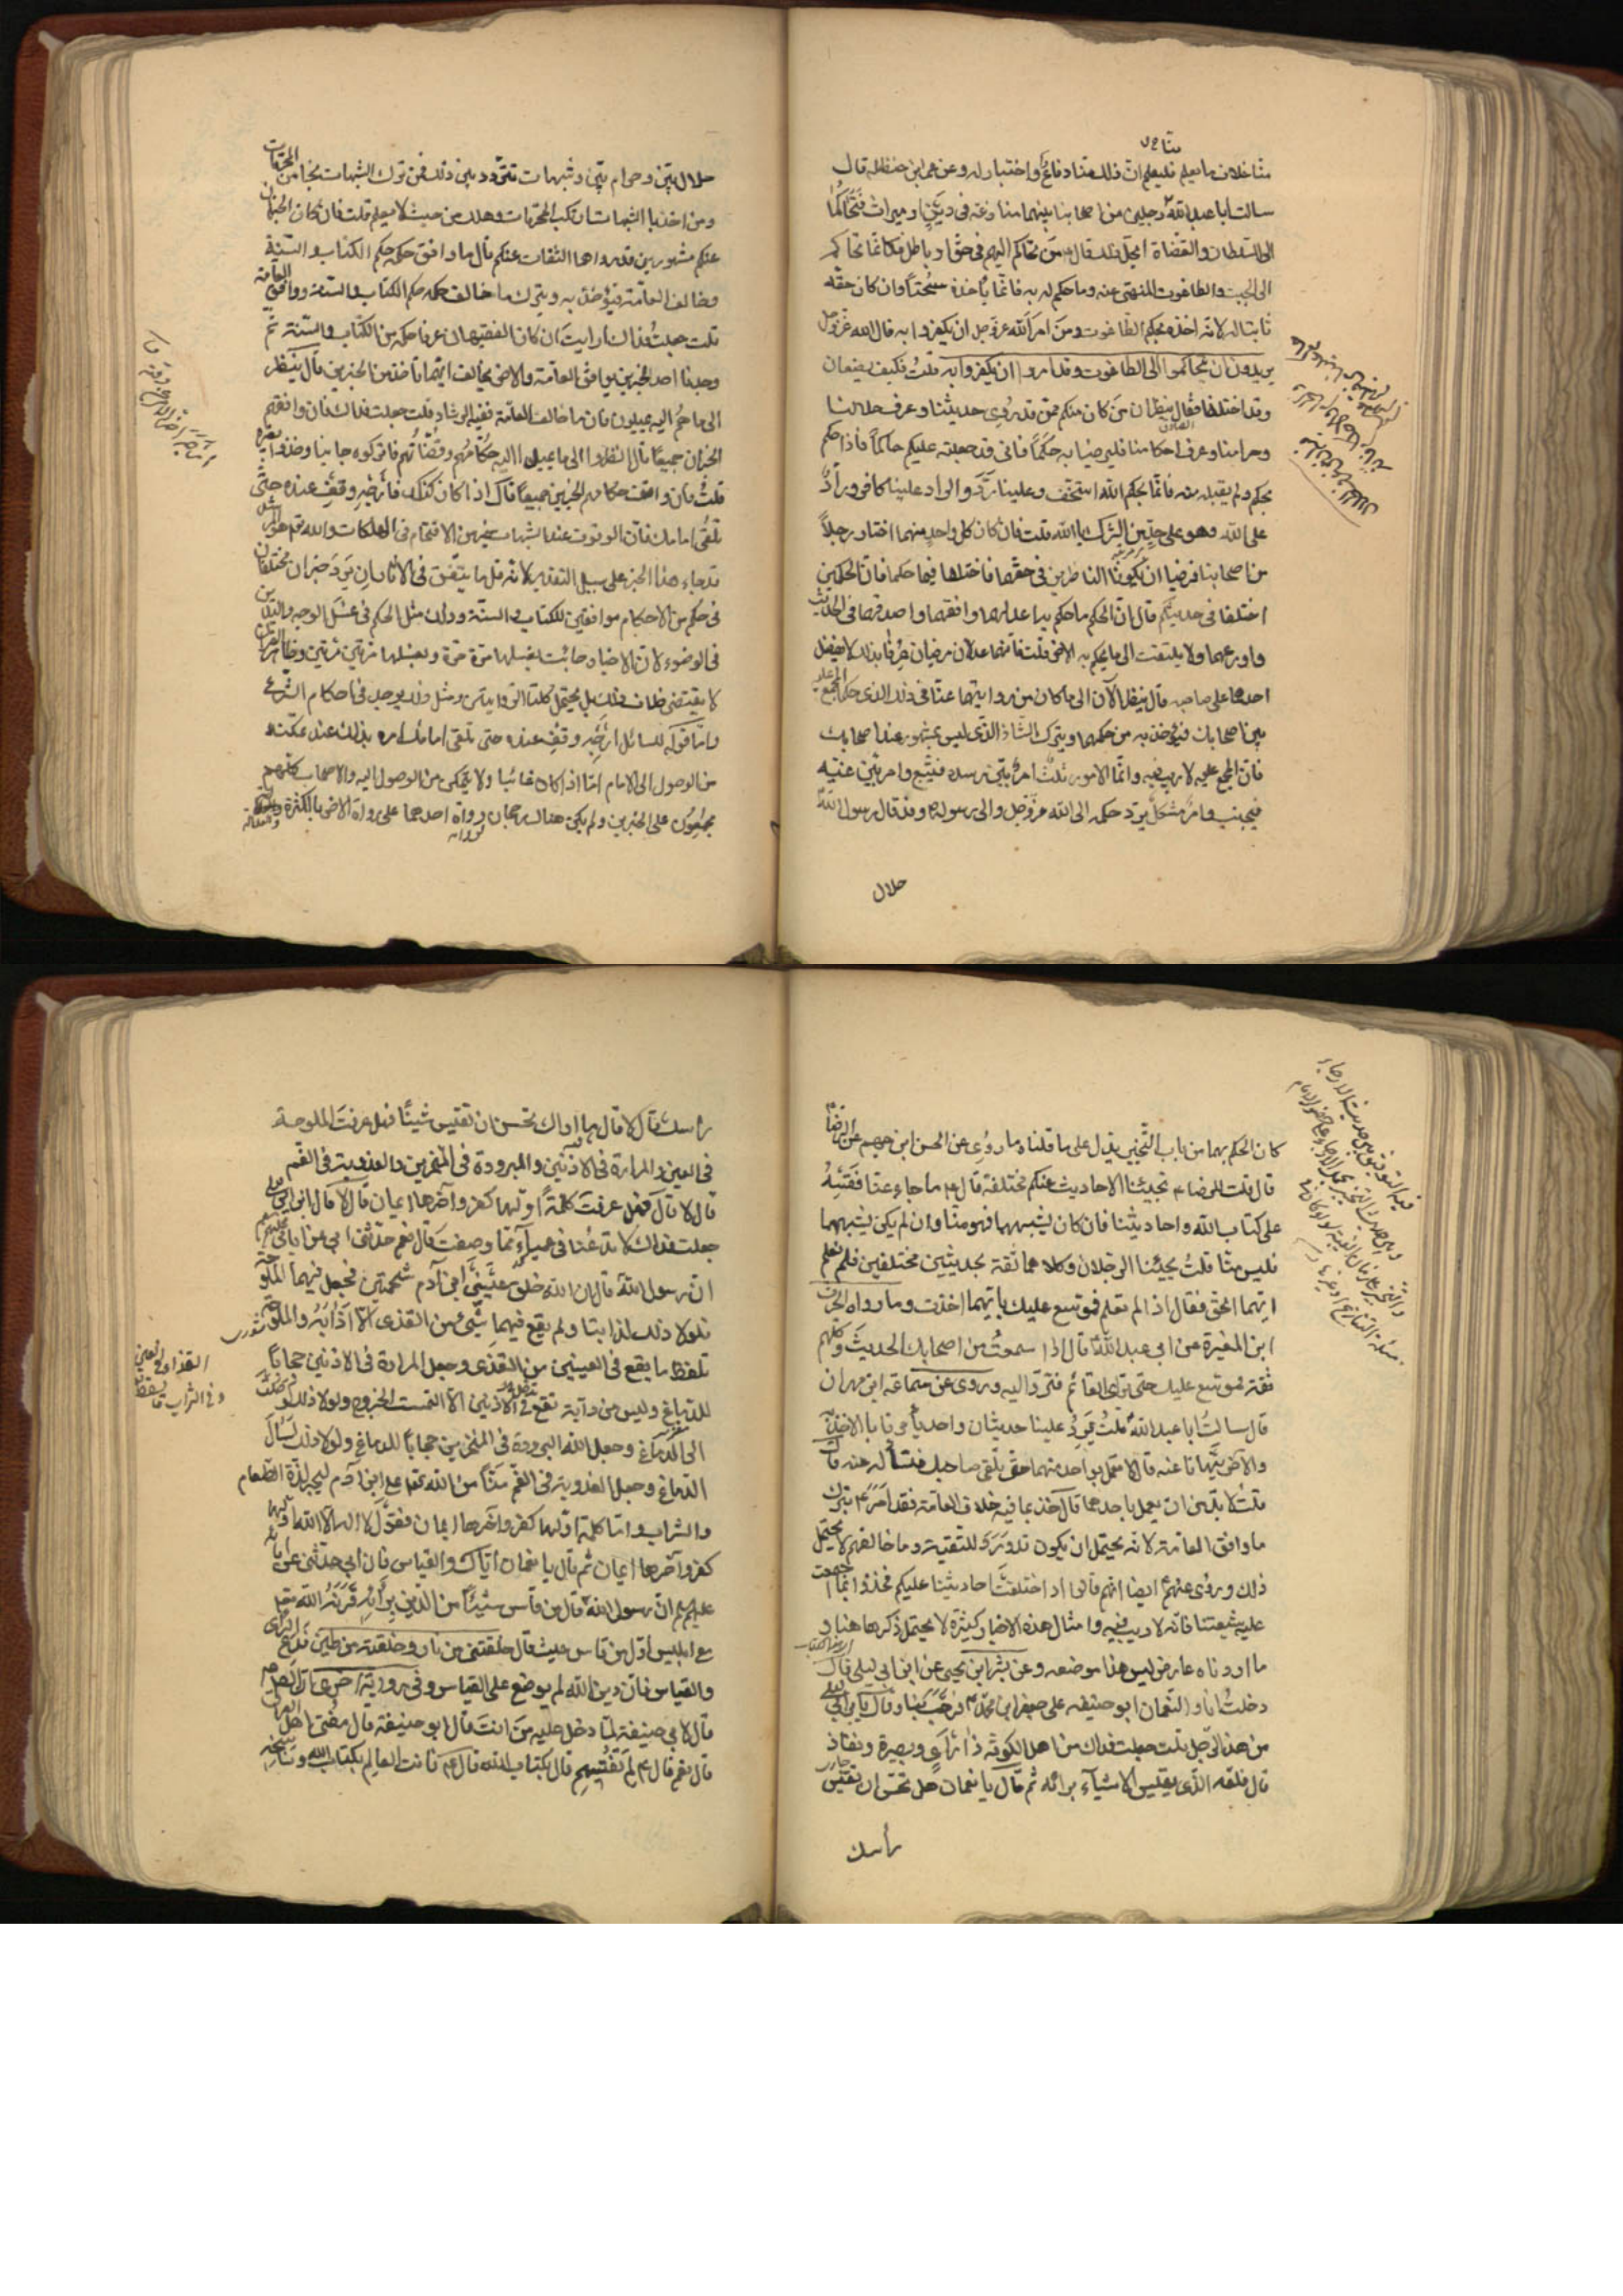 منا خلاف ما يعلم فليعلم ان ذلك منا دفاع واختيار له وعن عمر ابن حنظلة قال
سالت ابا عبد الله ع عن رجلين من اصحابنا بينهما منازعة في دين او ميراث فتحاكما
الى السلطان والقضاة ايحل ذلك قال ع من تحاكم اليهم في حق او باطل فكانما تحاكم
الى الجبت والطاغوت المنهى عنه وما حكم له به فانما يأخذه سحتاً وان كان حقه
ثابتا له لانه اخذه بحكم الطاغوت ومن امر الله عز وجل ان يكفروا به قال الله عز وجل
يريدون ان يتحاكموا الى الطاغوت وقد امروا ان يكفروا به قلتُ فكيف يصنعان
وقد اختلفا فقال ينظران من كان منكم ممن قد روى حديثنا وعرف حلالنا
وحرامنا وعرف احكامنا فليرضيا به حَكَماً فانى قد جعلته عليكم حاكماً فاذا حكم
بحكم ولم يقبله منه فانما بحكم الله استخف وعلينا رَدَّ والراد علينا كافر ورادٌّ
على الله وهو على حدٍّ من الشرك بالله قلت فان كان كل واحدٍ منهما اختار رجلاً
من اصحابنا فرضيا ان يكونا الناظرين في حقهما فاختلفا فيما حكما فان الحكمين
اختلفا في حديثكم قال ان الحكم ما حكم به اعدلهما وافقههما واصدقهما في الحديث
واورعهما ولا يلتفت الى ما يحكم به الاخر قلت فانهما عدلان مرضيان عُرفا بذلك لا يفضل
احدهما على صاحبه قال ينظر الآن الى ما كان من روايتهما عنا في ذلك الذى حكما المجمع عليه
بين اصحابك فيؤخذ به من حكمهما ويترك الشاذ الذى ليس بمشهور عند اصحابك
فان المجمع عليه لا ريب فيه وانما الامور ثلث امرٌ بيّن رشده فيتّبع وامر بيّن غيّه
فيجتنب وامر مشكل يرد حكمه الى الله عز وجل والى رسوله ص وقد قال رسول الله ص
حلال
حلال بيّن وحرام بيّن وشبهات تتردد بين ذلك فمن ترك الشبهات نجا من المحرمات
ومن اخذ بالشبهات ارتكب المحرمات وهلك من حيث لا يعلم قلت فان كان الخبران
عنكم مشهورين قد رواهما الثقات عنكم قال ما وافق حكمه حكم الكتاب والسنة
وخالف العامة فيؤخذ به ويترك ما خالف حكمه حكم الكتاب والسنة ووافق العامة
قلت جعلتُ فداك ارايت ان كان الفقيهان عرفا حكمه من الكتاب والسنة ثم
وجدنا احد الخبرين يوافق العامة والاخر يخالف ايهما ناخذ من الخبرين قال ينظر
الى ما هم اليه يميلون فان ما خالف العامة ففيه الرشاد قلت جعلت فداك فان وافقهم
الخبران جميعاً قال انظروا الى ما يميل اليه حكامهم وقضاتهم فاتركوه جانبا وخذوا بغيره
قلتُ فان وافقت حكامهم الخبرين جميعاً قال اذا كان كذلك فأرجه وقف عنده حتى
تلقى امامك فان الوقوف عند الشبهات خير من الاقتحام في الهلكات والله هو المرشد
قد جاء هذا الخبر على سبيل التقدير لانه قل ما يتفق في الاثار ان يرد خبران مختلفان
في حكم من الاحكام موافقين للكتاب والسنة وذلك مثل الحكم في غسل الوجه واليدين
في الوضوء لان الاخبار جائت بغسلها مرة مرة وبغسلها مرتين مرتين وظاهر القرآن
لا يقتضى خلاف ذلك بل يحتمل كلتا الروايتين ومثل ذلك يوجد في احكام الشرع
واما قوله للسائل ارجه وقف عنده حتى تلقى امامك امره بذلك عند تمكنه
من الوصول الى الامام اما اذا كان غائبا ولا يتمكن من الوصول اليه والاصحاب كلهم
مجمعون على الخبرين ولم يكن هناك رجحان رواة احدهما على رواة الاخر بالكثرة والعدالة
كان الحكم بهما من باب التخيير يدل على ما قلناه ما رُوى عن الحسن ابن جهم عن الرضا ع
قال قلت للرضا ع تجيئنا الاحاديث عنكم مختلفة قال ع ما جاءك عنا فقسه
على كتاب الله واحاديثنا فان كان يشبههما فهو منا وان لم يكن يشبههما
فليس منا قلتُ يجيئنا الرجلان وكلاهما ثقة بحديثين مختلفين فلم نعلم
ايهما الحق فقال اذا لم تعلم فموسع عليك بايهما اخذت وما رواه الحرث
ابن المغيرة عن ابي عبد الله ع قال اذا سمعتُ من اصحابك الحديث وكلهم
ثقة فموسع عليك حتى ترى القائم فترد اليه وروى عن سماعة ابن مهران
قال سالتُ ابا عبد الله ع قلتُ يرد علينا حديثان واحد يأمرنا بالاخذ به
والاخر ينهانا عنه قال لا تعمل بواحد منهما حتى تلقى صاحبك فتسأله عنه قال
قلتُ لا بد من ان يعمل باحدهما قال خذ بما فيه خلاف العامة فقد امر ع بترك
ما وافق العامة لانه يحتمل ان يكون قد ورد للتقية وما خالفهم لا يحتمل
ذلك وروى عنهم ع ايضا انهم قالوا اذا اختلفت احاديثنا عليكم فخذوا بما اجتمعت
عليه شيعتنا فانه لا ريب فيه وامثال هذه الاخبار كثيرة لا يحتمل ذكرها هنا و
ما اوردناه عارض ليس هذا موضعه وعن بشر ابن يحيى عن ابن ابي ليلى قال
دخلتُ انا والنعمان ابو حنيفه على جعفر ابن محمد ع فرحب بنا وقال يا بن ابي ليلى
من هذا الرجل قلت جعلت فداك من اهل الكوفة ذا رأى وبصيرة ونفاذ
قال فلعله الذى يقيس الاشياء برأيه ثم قال يا نعمان هل تحسن ان تقيس
رأسك
رأسك قال لا قال ما اراك تحسن ان تقيس شيئاً فهل عرفت الملوحة
في العين والمرارة في الاذنين والبرودة في المنخرين والعذوبة في الفم
قال لا قال فهل عرفت كلمةً اولها كفر وآخرها ايمان قال لا قال ابن ابي ليلى
جعلت فداك لا تدعنا في عمياء مما وصفت قال نعم حدثنى ابي عن ابائى عليهم
ان رسول الله ص قال ان الله خلق عينى ابن آدم شحمتين فجعل فيهما الملوحة
فلولا ذلك لذابتا ولم يقع فيهما شىء من القذى الا اذابه والملوحة
تلفظ ما يقع في العينين من القذى وجعل المرارة في الاذنين حجاباً
للدماغ وليس من دآبة تقع في الاذنين الا التمست الخروج ولولا ذلك لوصلت
الى الدماغ وجعل الله البرودة في المنخرين حجاباً للدماغ ولولا ذلك لسال
الدماغ وجعل العذوبة في الفم منّاً من الله تعالى على ابن آدم ليجد لذة الطعام
والشراب واما كلمة اولها كفر وآخرها ايمان فقول لا اله الا الله اولها
كفر وآخرها ايمان ثم قال يا نعمان اياك والقياس فان ابي حدثنى عن ابائه
عليهم ان رسول الله ص قال من قاس شيئاً من الدين برأيه قرنه الله تعالى
مع ابليس اول من قاس حيث قال خلقتنى من نار وخلقته من طين فدع الرأى
والقياس فان دين الله لم يوضع على القياس وفي رواية اخرى ان الصادق ع
قال لابي حنيفة لما دخل عليه من انت قال ابو حنيفة قال مفتى اهل العراق
قال نعم قال ع بم تفتيهم قال بكتاب الله قال ع فانت العالم بكتاب الله وناسخه